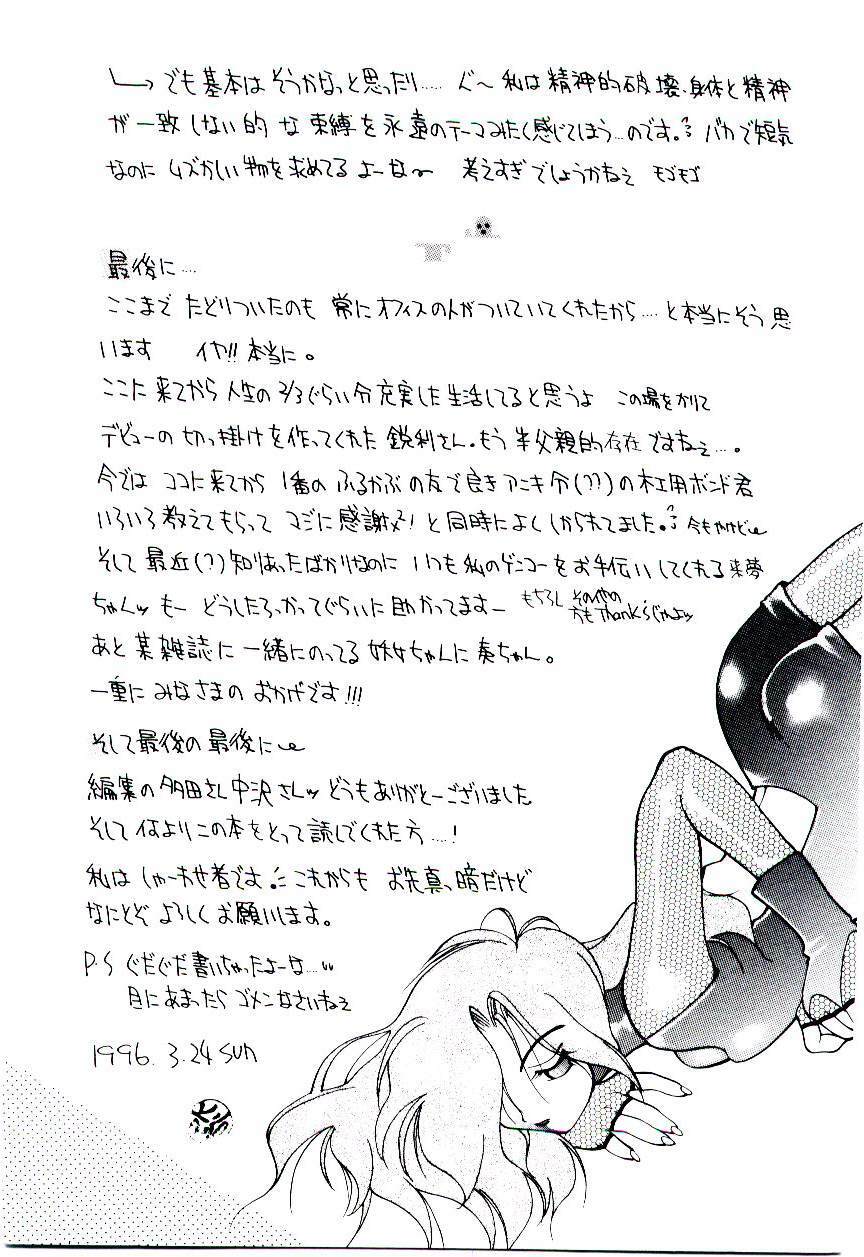 でも基本はそうかなっと思ったり..... ぐ〜 私は精神的破壊、身体と精神
が一致しない的な束縛を永遠のテーマみたく感じてしまう...のです。 バカで短気
なのに ムズかしい物を求めてるよーな〜 考えすぎでしょうかねえ モゴモゴ
最後に....
ここまで たどりついたのも 常にオフィスの人がついていてくれたから.... と本当にそう思
います イヤ!! 本当に。
ここに来てから人生の2/3ぐらい分充実した生活してると思うよ この場をかりて
デビューの切っ掛けを作ってくれた 鋭利さん。もう半父親的存在ですねぇ...。
今では ココに来てから 1番の ふるかぶの友で良きアニキ分(??)の木工用ボンド君
いろいろ教えてもらって マジに感謝! と同時によくしかられてました。 今もやけど
そして 最近(?)知りあったばかりなのに いつも私のゲンコーをお手伝いしてくれる来夢
ちゃんッ もー どうしたろっかってぐらいに助かってますー もちろん そのたの方もThank'sじゃよッ
あと某雑誌に一緒にのってる ちゃんに奏ちゃん。
一重に みなさまの おかげです!!!
そして最後の最後に
編集の多田さん中沢さんッ どうもありがとーございました
そして何よりこの本をとって読んでくれた方....!
私は しゃーわせ者です これからも お先真っ暗だけど
なにとぞ よろしく お願いします。
P.S ぐだぐだ書いちゃったよーな...
目にあまったら ゴメンなさいねぇ
1996. 3.24 SUN